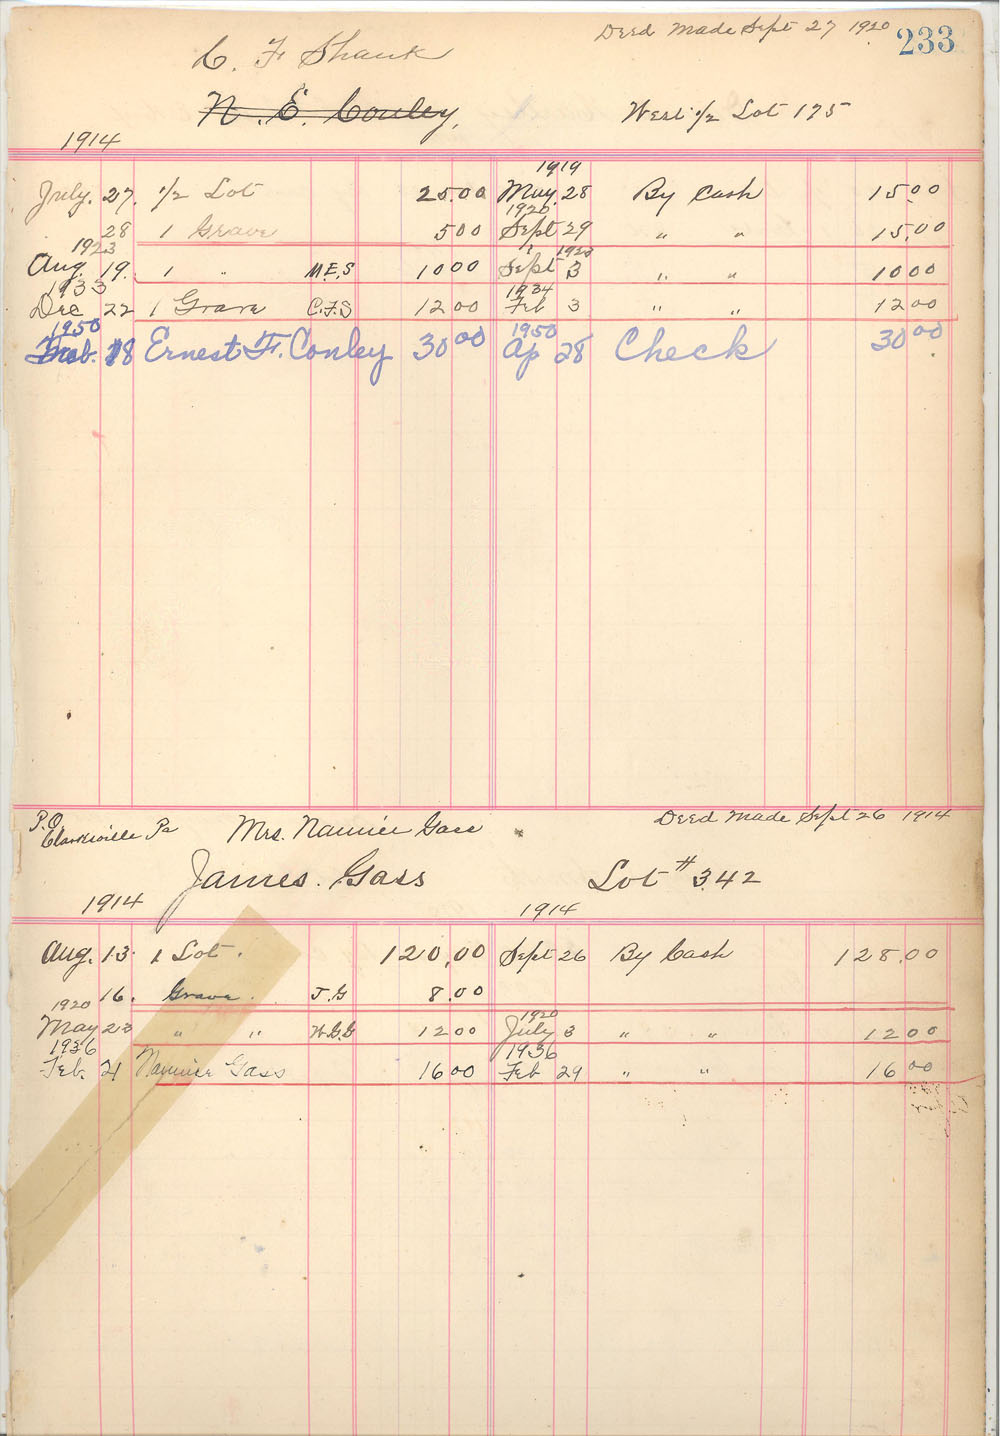 Deed Made Sept 27 1920 233
C. F. Shank
N. E. Conley, West 1/2 Lot 175
1914
1919
July. 27. 1/2 Lot 25.00 May. 28 By Cash 15.00
1920
28 1 Grave 5 00 Sept 29 " " 15.00
1923 1923
Aug. 19. 1 " M.E.S 10 00 Sept 3 " " 10 00
1933 1934
Dec 22 1 Grave C.F.S 12 00 Feb 3 " " 12 00
1950 1950
18 Ernest F. Conley 30 00 Ap 28 Check 30 00
P.O. Clarksville Pa Mrs. Nannie Gass Deed Made Sept 26 1914
James. Gass Lot # 342
1914 1914
Aug. 13. 1 Lot. 120.00 Sept 26 By Cash 128.00
16. Grave. J.G 8.00
1920 1920
May 23 " " 12 00 July 3 " " 12 00
1936 1936
Feb. 21 Nannie Gass 16 00 Feb 29 " " 16 00